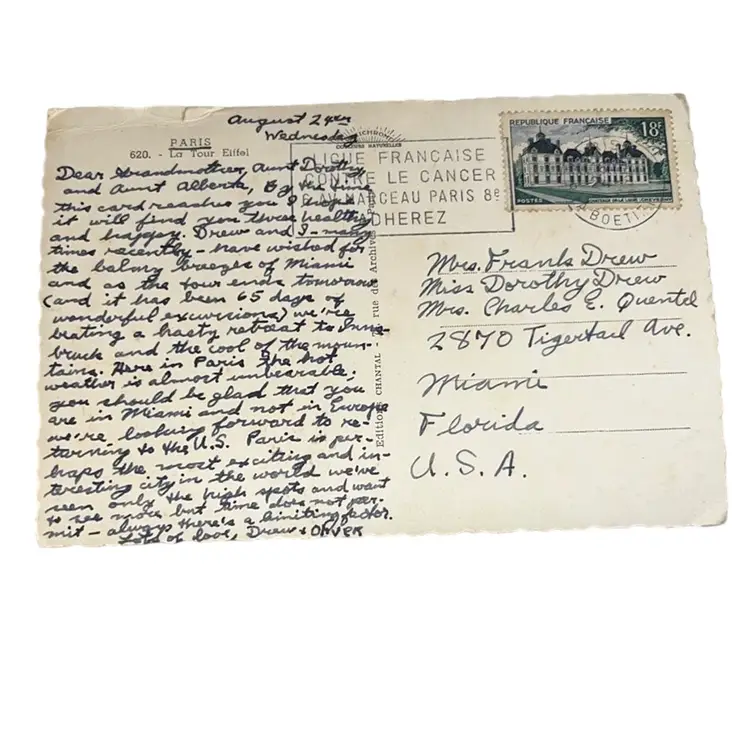 August 24th
Wednesday
PARIS
620. - La Tour Eiffel
Dear Grandmother, Aunt Dorothy
and Aunt Alberta, By the time
this card reaches you I hope
it will find you three healthy
and happy. Drew and I - many
times recently - have wished for
the balmy breezes of Miami
and as the tour ends tomorrow
(and it has been 65 days of
wonderful excursions) we're
beating a hasty retreat to Inns-
bruck and the cool of the moun-
tains. Here in Paris the hot
weather is almost unbearable.
You should be glad that you
are in Miami and not in Europe
we're looking forward to re-
turning to the U.S. Paris is per-
haps the most exciting and in-
teresting city in the world we've
seen only the high spots and want
to see more but time does not per-
mit - always there's a limiting factor.
Lots of love, Drew +
Editions CHANTAL rue des Archives
COULEURS NATURELLES
LIGUE FRANÇAISE
CONTRE LE CANCER
MARCEAU PARIS 8e
ADHEREZ
REPUBLIQUE FRANÇAISE
18F
POSTES
LA BOETIE
Mrs. Frank Drew
Miss Dorothy Drew
Mrs. Charles E. Quentel
2870 Tigertail Ave.
Miami
Florida
U.S.A.